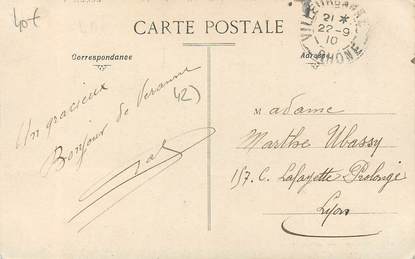 40€
CARTE POSTALE
Correspondance
Adresse
VILLEURBANNE
21 *
22-9
10
RHÔNE
Un gracieux
Bonjour de Veranne
42)
Madame
Marthe Ubassy
157. C. Lafayette Prolongé
Lyon